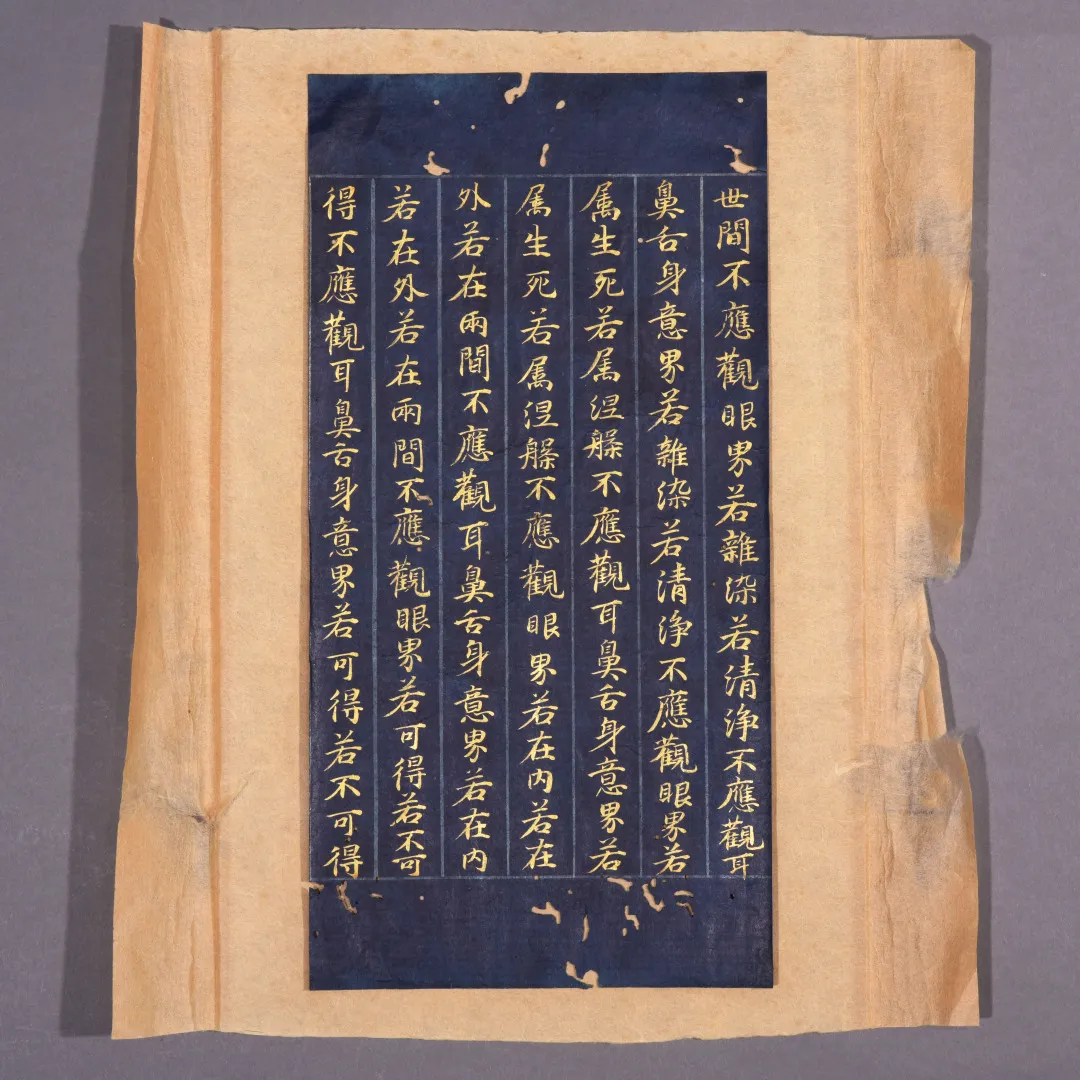 世間不應觀眼界若雜染若清浄不應觀耳
鼻舌身意界若雜染若清浄不應觀眼界若
属生死若属涅槃不應觀耳鼻舌身意界若
属生死若属涅槃不應觀眼界若在内若在
外若在兩間不應觀耳鼻舌身意界若在内
若在外若在兩間不應觀眼界若可得若不可
得不應觀耳鼻舌身意界若可得若不可得